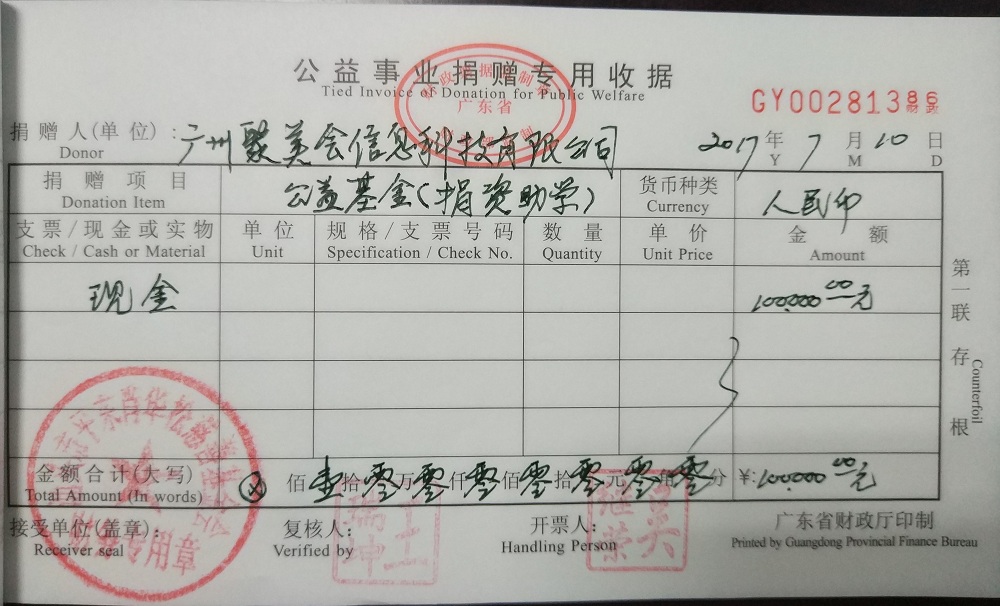 公益事业捐赠专用收据
Tied Invoice of Donation for Public Welfare
广东省
GY00281386
捐赠人(单位): 广州聚美会信息科技有限公司 2017年7月10日
Donor Y M D
捐赠项目 公益基金(捐资助学) 货币种类 人民币
Donation Item Currency
支票/现金或实物 单位 规格/支票号码 数量 单价 金额
Check / Cash or Material Unit Specification / Check No. Quantity Unit Price Amount
现金 100,000.00元
第一联 存根
Counterfoil
金额合计(大写) ⊗ 佰壹拾零万零仟零佰零拾零元零角零分 ¥:100,000.00元
Total Amount (In words)
接受单位(盖章): 复核人: 开票人: 广东省财政厅印制
Receiver seal Verified by Handling Person Printed by Guangdong Provincial Finance Bureau
专用章